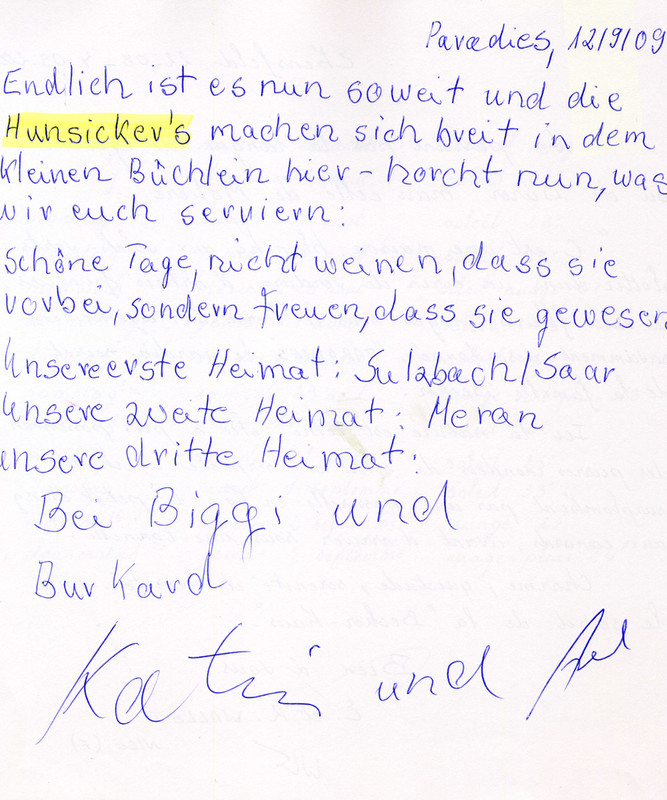 Paradies, 12/9/09
Endlich ist es nun soweit und die
Hunsicker's machen sich breit in dem
kleinen Büchlein hier - horcht nun, was
wir euch serviern:
Schöne Tage, nicht weinen, dass sie
vorbei, sondern freuen, dass sie gewesen
Unsere erste Heimat: Sulzbach/Saar
Unsere zweite Heimat: Meran
unsere dritte Heimat:
Bei Biggi und
Burkard
Katrin und